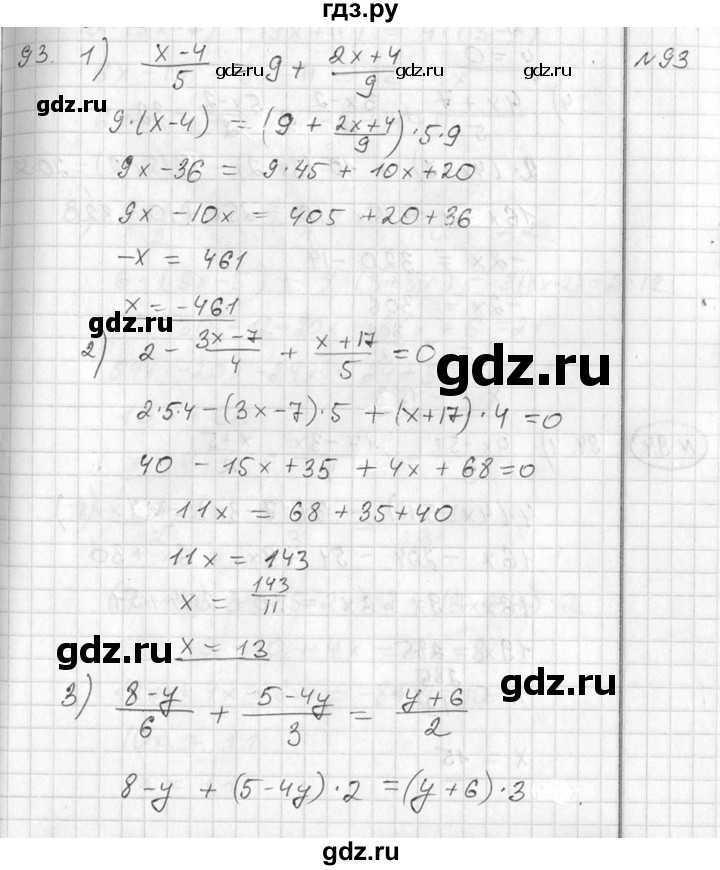 гдз.ру
93. 1) (x-4)/5 = 9 + (2x+4)/9
№93
9·(x-4) = (9 + (2x+4)/9)·5·9
9x-36 = 9·45 + 10x+20
9x-10x = 405 +20+36
-x = 461
x = -461
2) 2 - (3x-7)/4 + (x+17)/5 = 0
2·5·4-(3x-7)·5 +(x+17)·4 =0
40 - 15x+35 + 4x + 68=0
11x = 68+35+40
11x = 143
x = 143/11
x = 13
3) (8-y)/6 + (5-4y)/3 = (y+6)/2
8-y +(5-4y)·2 =(y+6)·3
gdz.ru
gdz.ru
gdz.ru
gdz.ru
gdz.ru
gdz.ru
gdz.ru
gdz.ru
gdz.ru